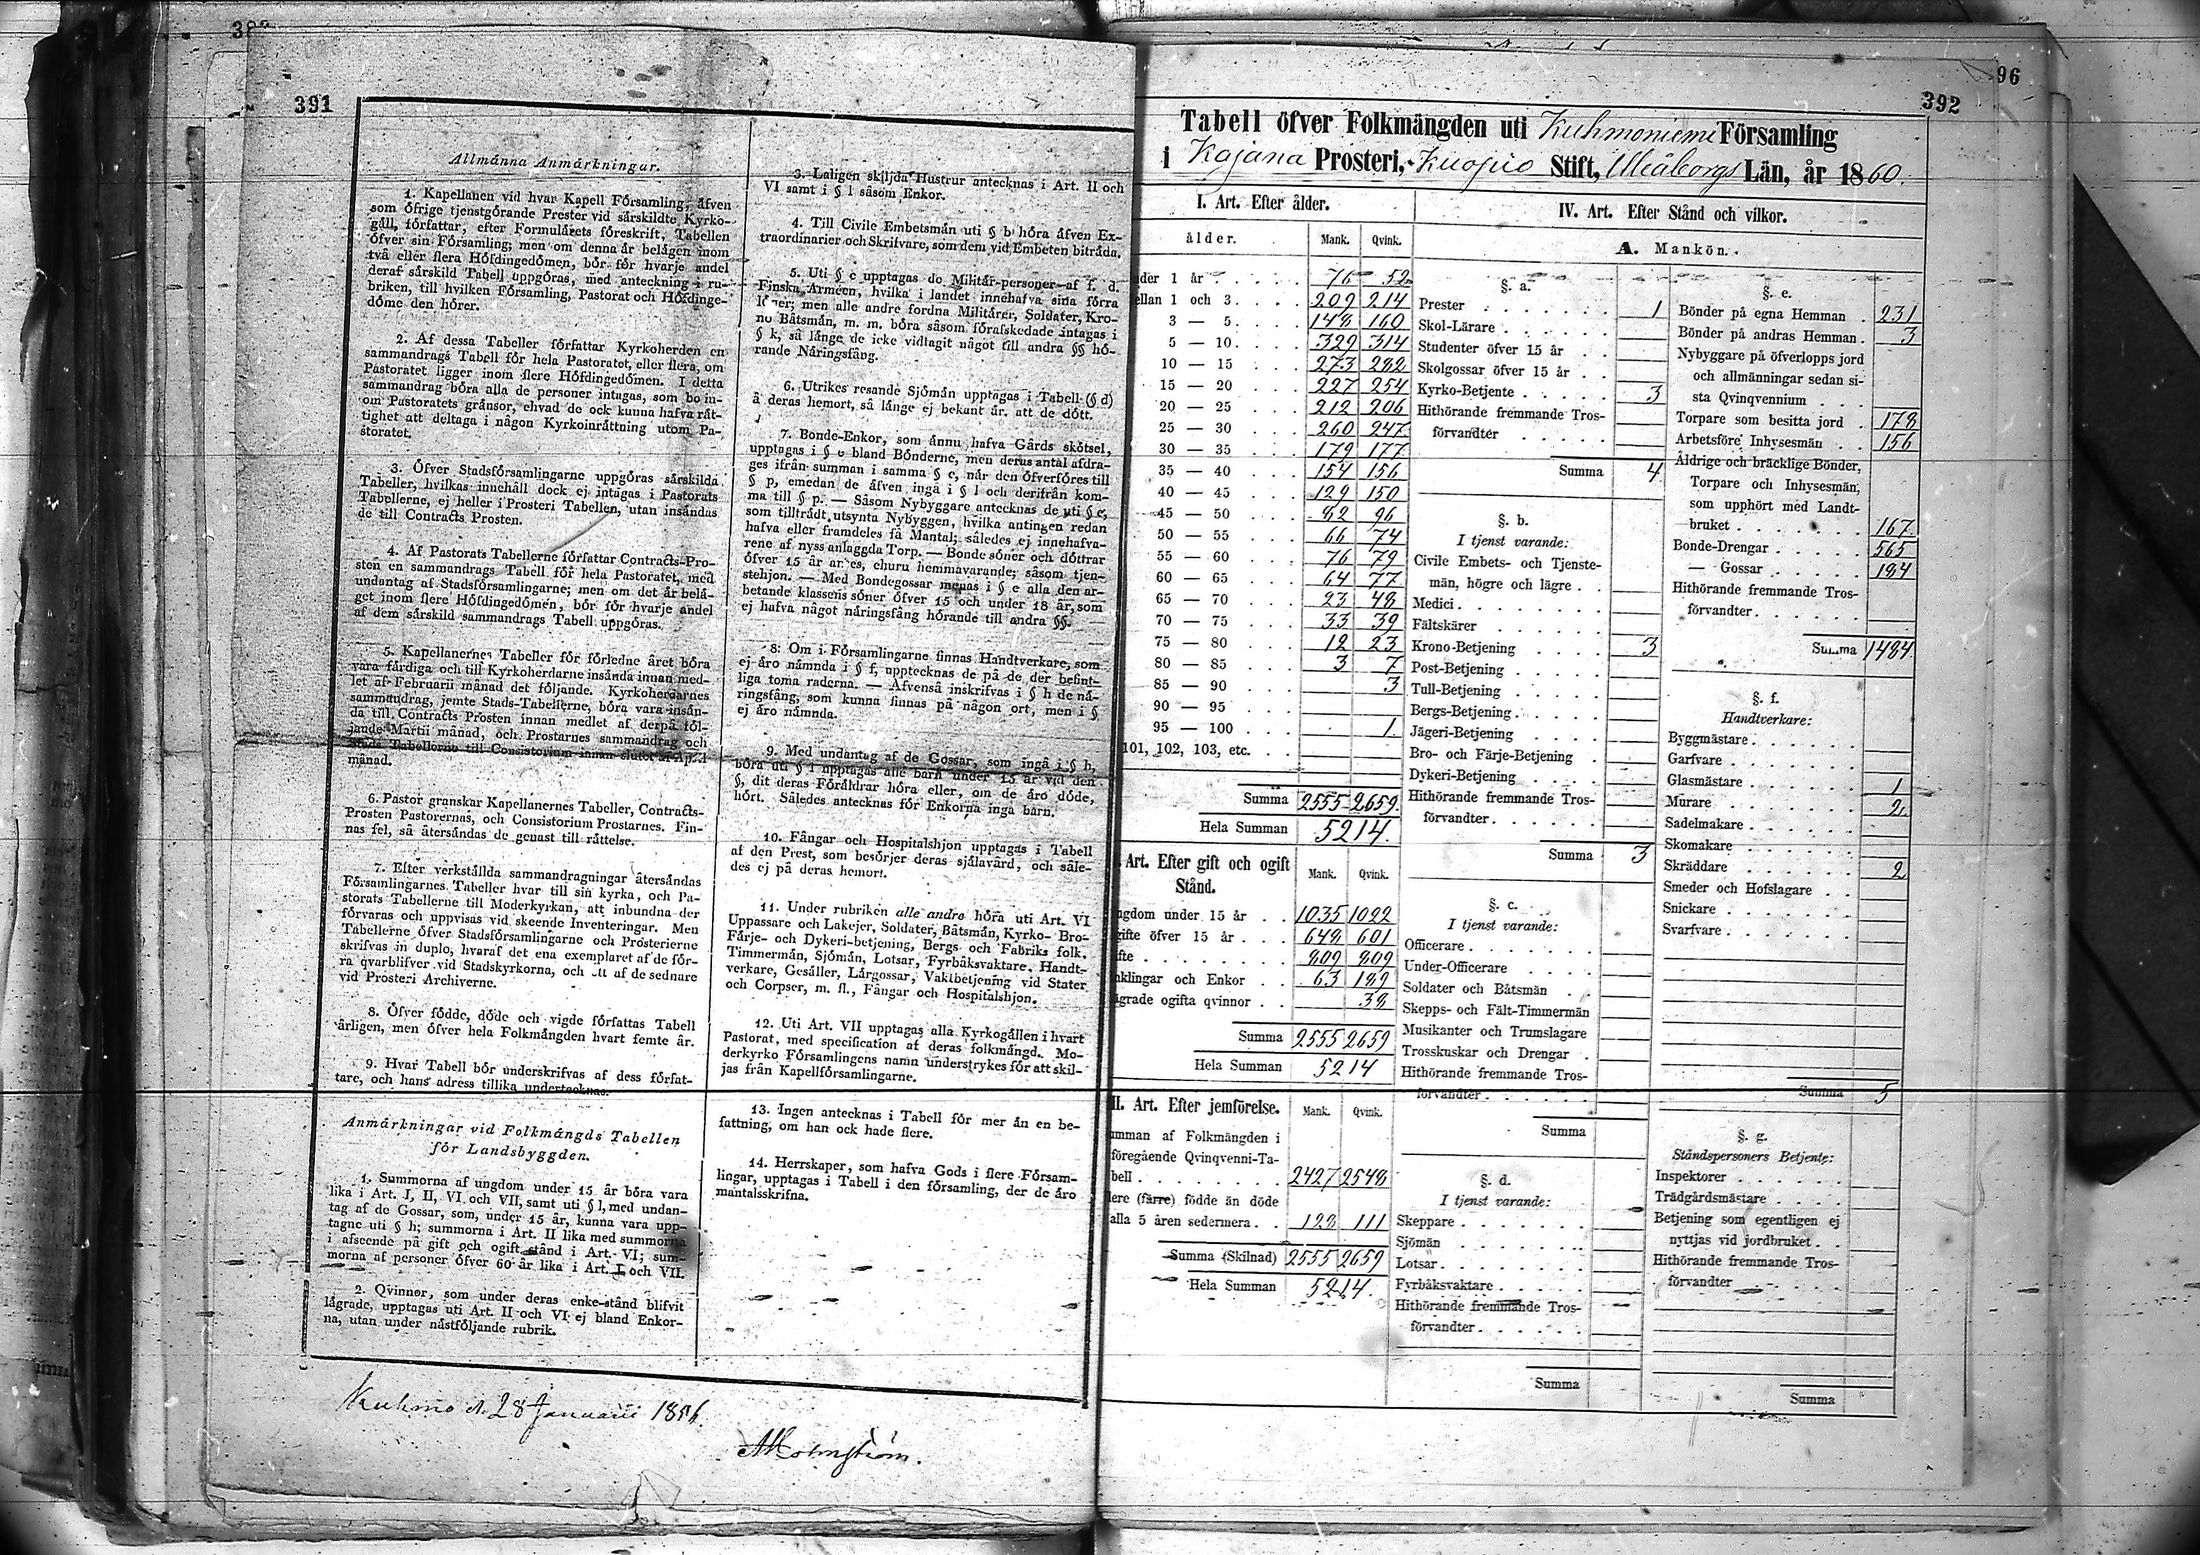 391
Allmänna Anmärkningar.
1. Kapellanen vid hvar Kapell Församling, äfven
som öfrige tjenstgörande Prester vid särskildte Kyrko-
gäll, författar, efter Formulärets föreskrift, Tabellen
öfver sin Församling; men om denna är belägen inom
två eller flera Höfdingedömen, bör för hvarje andel
deraf särskild Tabell uppgöras, med anteckning i ru-
briken, till hvilken Församling, Pastorat och Höfdinge-
döme den hörer.
2. Af dessa Tabeller författar Kyrkoherden en
sammandrags Tabell för hela Pastoratet, eller flera, om
Pastoratet ligger inom flere Höfdingedömen. I detta
sammandrag böra alla de personer intagas, som bo in-
om Pastoratets gränsor, ehvad de ock kunna hafva rät-
tighet att deltaga i någon Kyrkoinrättning utom Pa-
storatet.
3. Öfver Stadsförsamlingarne uppgöras särskilda
Tabeller, hvilkas innehåll dock ej intagas i Pastorats
Tabellerne, ej heller i Prosteri Tabellen, utan insändas
de till Contracts Prosten.
4. Af Pastorats Tabellerne författar Contracts-Pro-
sten en sammandrags Tabell för hela Pastoratet, med
undantag af Stadsförsamlingarne; men om det är belä-
get inom flere Höfdingedömen, bör för hvarje andel
af dem särskild sammandrags Tabell uppgöras.
5. Kapellanernes Tabeller för förledne året böra
vara färdiga och till Kyrkoherdarne insända innan med-
let af Februarii månad det följande. Kyrkoherdarnes
sammandrag, jemte Stads-Tabellerne, böra vara insän-
da till Contracts Prosten innan medlet af derpå föl-
jande Martii månad, och Prostarnes sammandrag och
Stads Tabellerne till Consistorium innan slutet af April
månad.
6. Pastor granskar Kapellanernes Tabeller, Contracts-
Prosten Pastorernas, och Consistorium Prostarnes. Fin-
nas fel, så återsändas de genast till rättelse.
7. Efter verkställda sammandragningar återsändas
Församlingarnes Tabeller hvar till sin kyrka, och Pa-
storats Tabellerne till Moderkyrkan, att inbundna der
förvaras och uppvisas vid skeende Inventeringar. Men
Tabellerne öfver Stadsförsamlingarne och Prosterierne
skrifvas in duplo, hvaraf det ena exemplaret af de för-
ra qvarblifver vid Stadskyrkorna, och ett af de sednare
vid Prosteri Archiverne.
8. Öfver födde, döde och vigde författas Tabell
årligen, men öfver hela Folkmängden hvart femte år.
9. Hvar Tabell bör underskrifvas af dess förfat-
tare, och hans adress tillika undertecknas.
Anmärkningar vid Folkmängds Tabellen
för Landsbyggden.
1. Summorna af ungdom under 15 år böra vara
lika i Art. I, II, VI och VII, samt uti § l, med undan-
tag af de Gossar, som, under 15 år, kunna vara upp-
tagne uti § h; summorna i Art. II lika med summorna
i afseende på gift och ogift stånd i Art. VI; sum-
morna af personer öfver 60 år lika i Art. I och VII.
2. Qvinnor, som under deras enke-stånd blifvit
lägrade, upptagas uti Art. II och VI ej bland Enkor-
na, utan under nästföljande rubrik.
3. Laligen skiljda Hustrur antecknas i Art. II och
VI samt i § l såsom Enkor.
4. Till Civile Embetsmän uti § b höra äfven Ex-
traordinarier och Skrifvare, som dem vid Embeten biträda.
5. Uti § c upptagas de Militär-personer af f. d.
Finska Armeen, hvilka i landet innehafva sina förra
löner; men alle andre fordna Militärer, Soldater, Kro-
no Båtsmän, m. m. böra såsom förafskedade intagas i
§ k, så länge de icke vidtagit något till andra §§ hö-
rande Näringsfång.
6. Utrikes resande Sjömän upptagas i Tabell (§ d)
å deras hemort, så länge ej bekant är, att de dött.
7. Bonde-Enkor, som ännu hafva Gårds skötsel,
upptagas i § e bland Bönderne, men deras antal afdra-
ges ifrån summan i samma § e, när den öfverföres till
§ p, emedan de äfven ingå i § l och derifrån kom-
ma till § p. — Såsom Nybyggare antecknas de uti § e,
som tillträdt utsynta Nybyggen, hvilka antingen redan
hafva eller framdeles få Mantal; således ej innehafva-
rene af nyss anlaggda Torp. — Bonde söner och döttrar
öfver 15 år anses, ehuru hemmavarande, såsom tjen-
stehjon. — Med Bondegossar menas i § e alla den ar-
betande klassens söner öfver 15 och under 18 år, som
ej hafva något näringsfång hörande till andra §§.
8. Om i Församlingarne finnas Handtverkare, som
ej äro nämnda i § f, upptecknas de på de der befint-
liga toma raderna. — Äfvenså inskrifvas i § h de nä-
ringsfång, som kunna finnas på någon ort, men i §
ej äro nämnda.
9. Med undantag af de Gossar, som ingå i § h,
böra uti § l upptagas alle barn under 15 år vid den
§, dit deras Föräldrar höra eller, om de äro döde,
hört. Således antecknas för Enkorna inga barn.
10. Fångar och Hospitalshjon upptagas i Tabell
af den Prest, som besörjer deras själavård, och såle-
des ej på deras hemort.
11. Under rubriken alle andre höra uti Art. VI
Uppassare och Lakejer, Soldater, Båtsmän, Kyrko- Bro-
Färje- och Dykeri-betjening, Bergs- och Fabriks folk,
Timmermän, Sjömän, Lotsar, Fyrbåksvaktare, Handt-
verkare, Gesäller, Lärgossar, Vaktbetjening vid Stater
och Corpser, m. fl., Fångar och Hospitalshjon.
12. Uti Art. VII upptagas alla Kyrkogällen i hvart
Pastorat, med specification af deras folkmängd. Mo-
derkyrko Församlingens namn understrykes för att skil-
jas från Kapellförsamlingarne.
13. Ingen antecknas i Tabell för mer än en be-
fattning, om han ock hade flere.
14. Herrskaper, som hafva Gods i flere Försam-
lingar, upptagas i Tabell i den församling, der de äro
mantalsskrifna.
Kuhmo d. 28 Januarii 1856.
AHolmström.
96
392
Tabell öfver Folkmängden uti Kuhmoniemi Församling
i Kajana Prosteri, Kuopio Stift, Uleåborgs Län, år 1860.
I. Art. Efter ålder.
ålder. Mank. Qvink.
nder 1 år 76 52
ellan 1 och 3 209 214
3 — 5 148 160
5 — 10 329 314
10 — 15 273 282
15 — 20 227 254
20 — 25 212 206
25 — 30 260 247
30 — 35 179 177
35 — 40 154 156
40 — 45 129 150
45 — 50 82 96
50 — 55 66 74
55 — 60 76 79
60 — 65 64 77
65 — 70 23 48
70 — 75 33 39
75 — 80 12 23
80 — 85 3 7
85 — 90 3
90 — 95
95 — 100 1
101, 102, 103, etc.
Summa 2555 2659
Hela Summan 5214.
Art. Efter gift och ogift
Stånd. Mank. Qvink.
ngdom under 15 år 1035 1022
gifte öfver 15 år 648 601
fte 809 809
nklingar och Enkor 63 189
ägrade ogifta qvinnor 38
Summa 2555 2659
Hela Summan 5214
II. Art. Efter jemförelse. Mank. Qvink.
mman af Folkmängden i
föregående Qvinqvenni-Ta-
bell 2427 2548
lere (färre) födde än döde
alla 5 åren sedermera 128 111
Summa (Skilnad) 2555 2659
Hela Summan 5214.
IV. Art. Efter Stånd och vilkor.
A. Mankön.
§. a.
Prester 1
Skol-Lärare
Studenter öfver 15 år
Skolgossar öfver 15 år
Kyrko-Betjente 3
Hithörande fremmande Tros-
förvandter
Summa 4
§. b.
I tjenst varande:
Civile Embets- och Tjenste-
män, högre och lägre
Medici
Fältskärer
Krono-Betjening 3
Post-Betjening
Tull-Betjening
Bergs-Betjening
Jägeri-Betjening
Bro- och Färje-Betjening
Dykeri-Betjening
Hithörande fremmande Tros-
förvandter
Summa 3
§. c.
I tjenst varande:
Officerare
Under-Officerare
Soldater och Båtsmän
Skepps- och Fält-Timmermän
Musikanter och Trumslagare
Trosskuskar och Drengar
Hithörande fremmande Tros-
förvandter
Summa
§. d.
I tjenst varande:
Skeppare
Sjömän
Lotsar
Fyrbåksvaktare
Hithörande fremmande Tros-
förvandter
Summa
§. e.
Bönder på egna Hemman 231
Bönder på andras Hemman 3
Nybyggare på öfverlopps jord
och allmänningar sedan si-
sta Qvinqvennium
Torpare som besitta jord 178
Arbetsföre Inhysesmän 156
Åldrige och bräcklige Bönder,
Torpare och Inhysesmän,
som upphört med Landt-
bruket 167
Bonde-Drengar 565
— Gossar 184
Hithörande fremmande Tros-
förvandter
Summa 1484
§. f.
Handtverkare:
Byggmästare
Garfvare
Glasmästare 1
Murare 2
Sadelmakare
Skomakare
Skräddare 2
Smeder och Hofslagare
Snickare
Svarfvare
Summa 5
§. g.
Ståndspersoners Betjente:
Inspektorer
Trädgårdsmästare
Betjening som egentligen ej
nyttjas vid jordbruket
Hithörande fremmande Tros-
förvandter
Summa